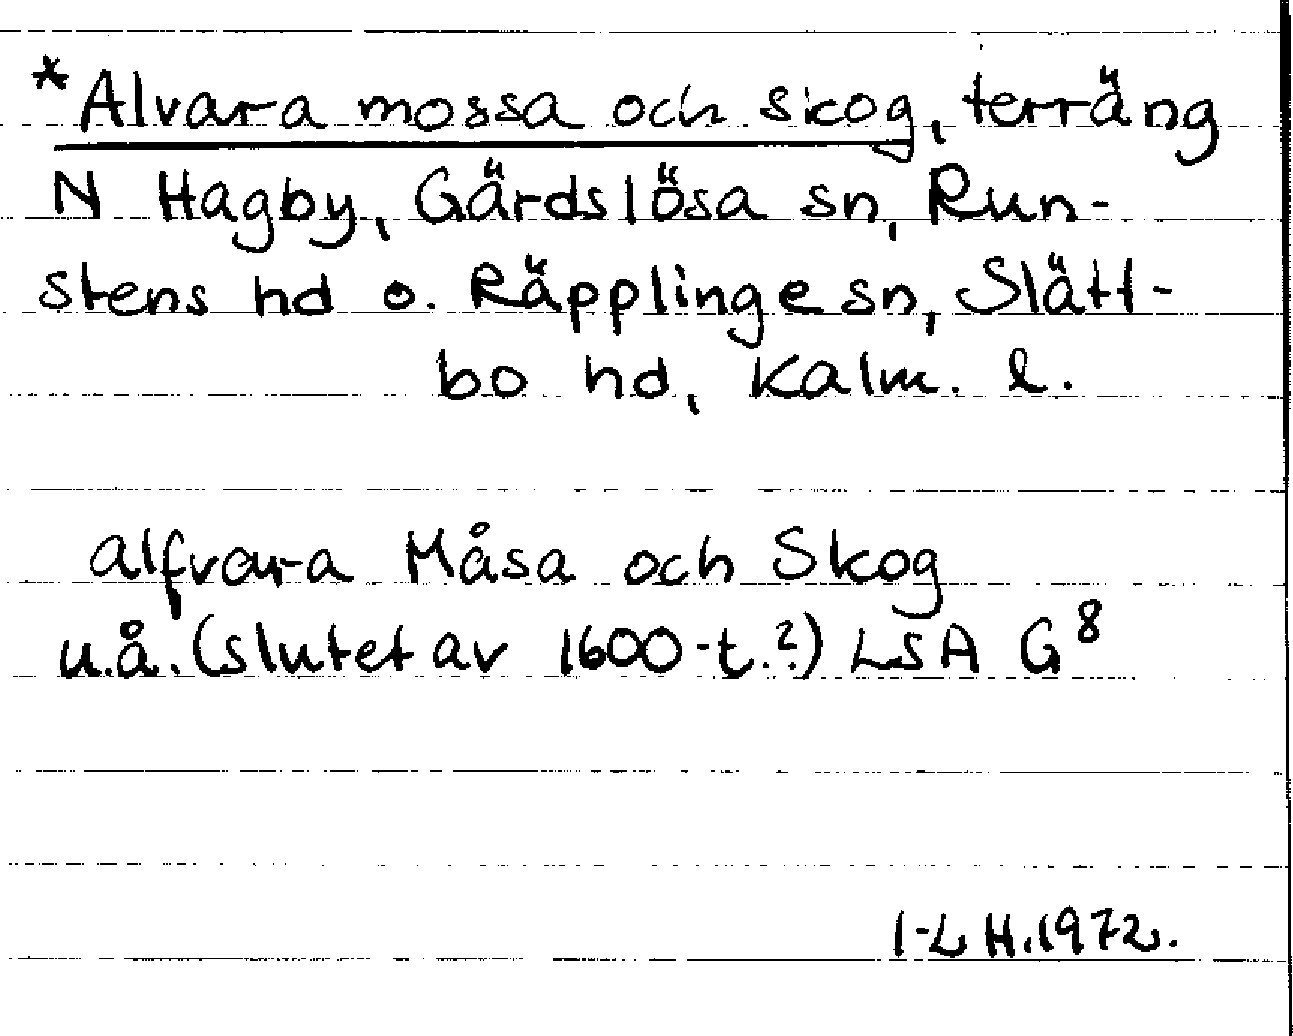 *Alvara mossa och skog, terräng
N Hagby, Gärdslösa sn, Run-
stens hd o. Räpplinge sn, Slätt-
bo hd, Kalm. l.
alfvara Måsa och Skog
u.å. (slutet av 1600-t.?) LSA G⁸
I-L H. 1972.